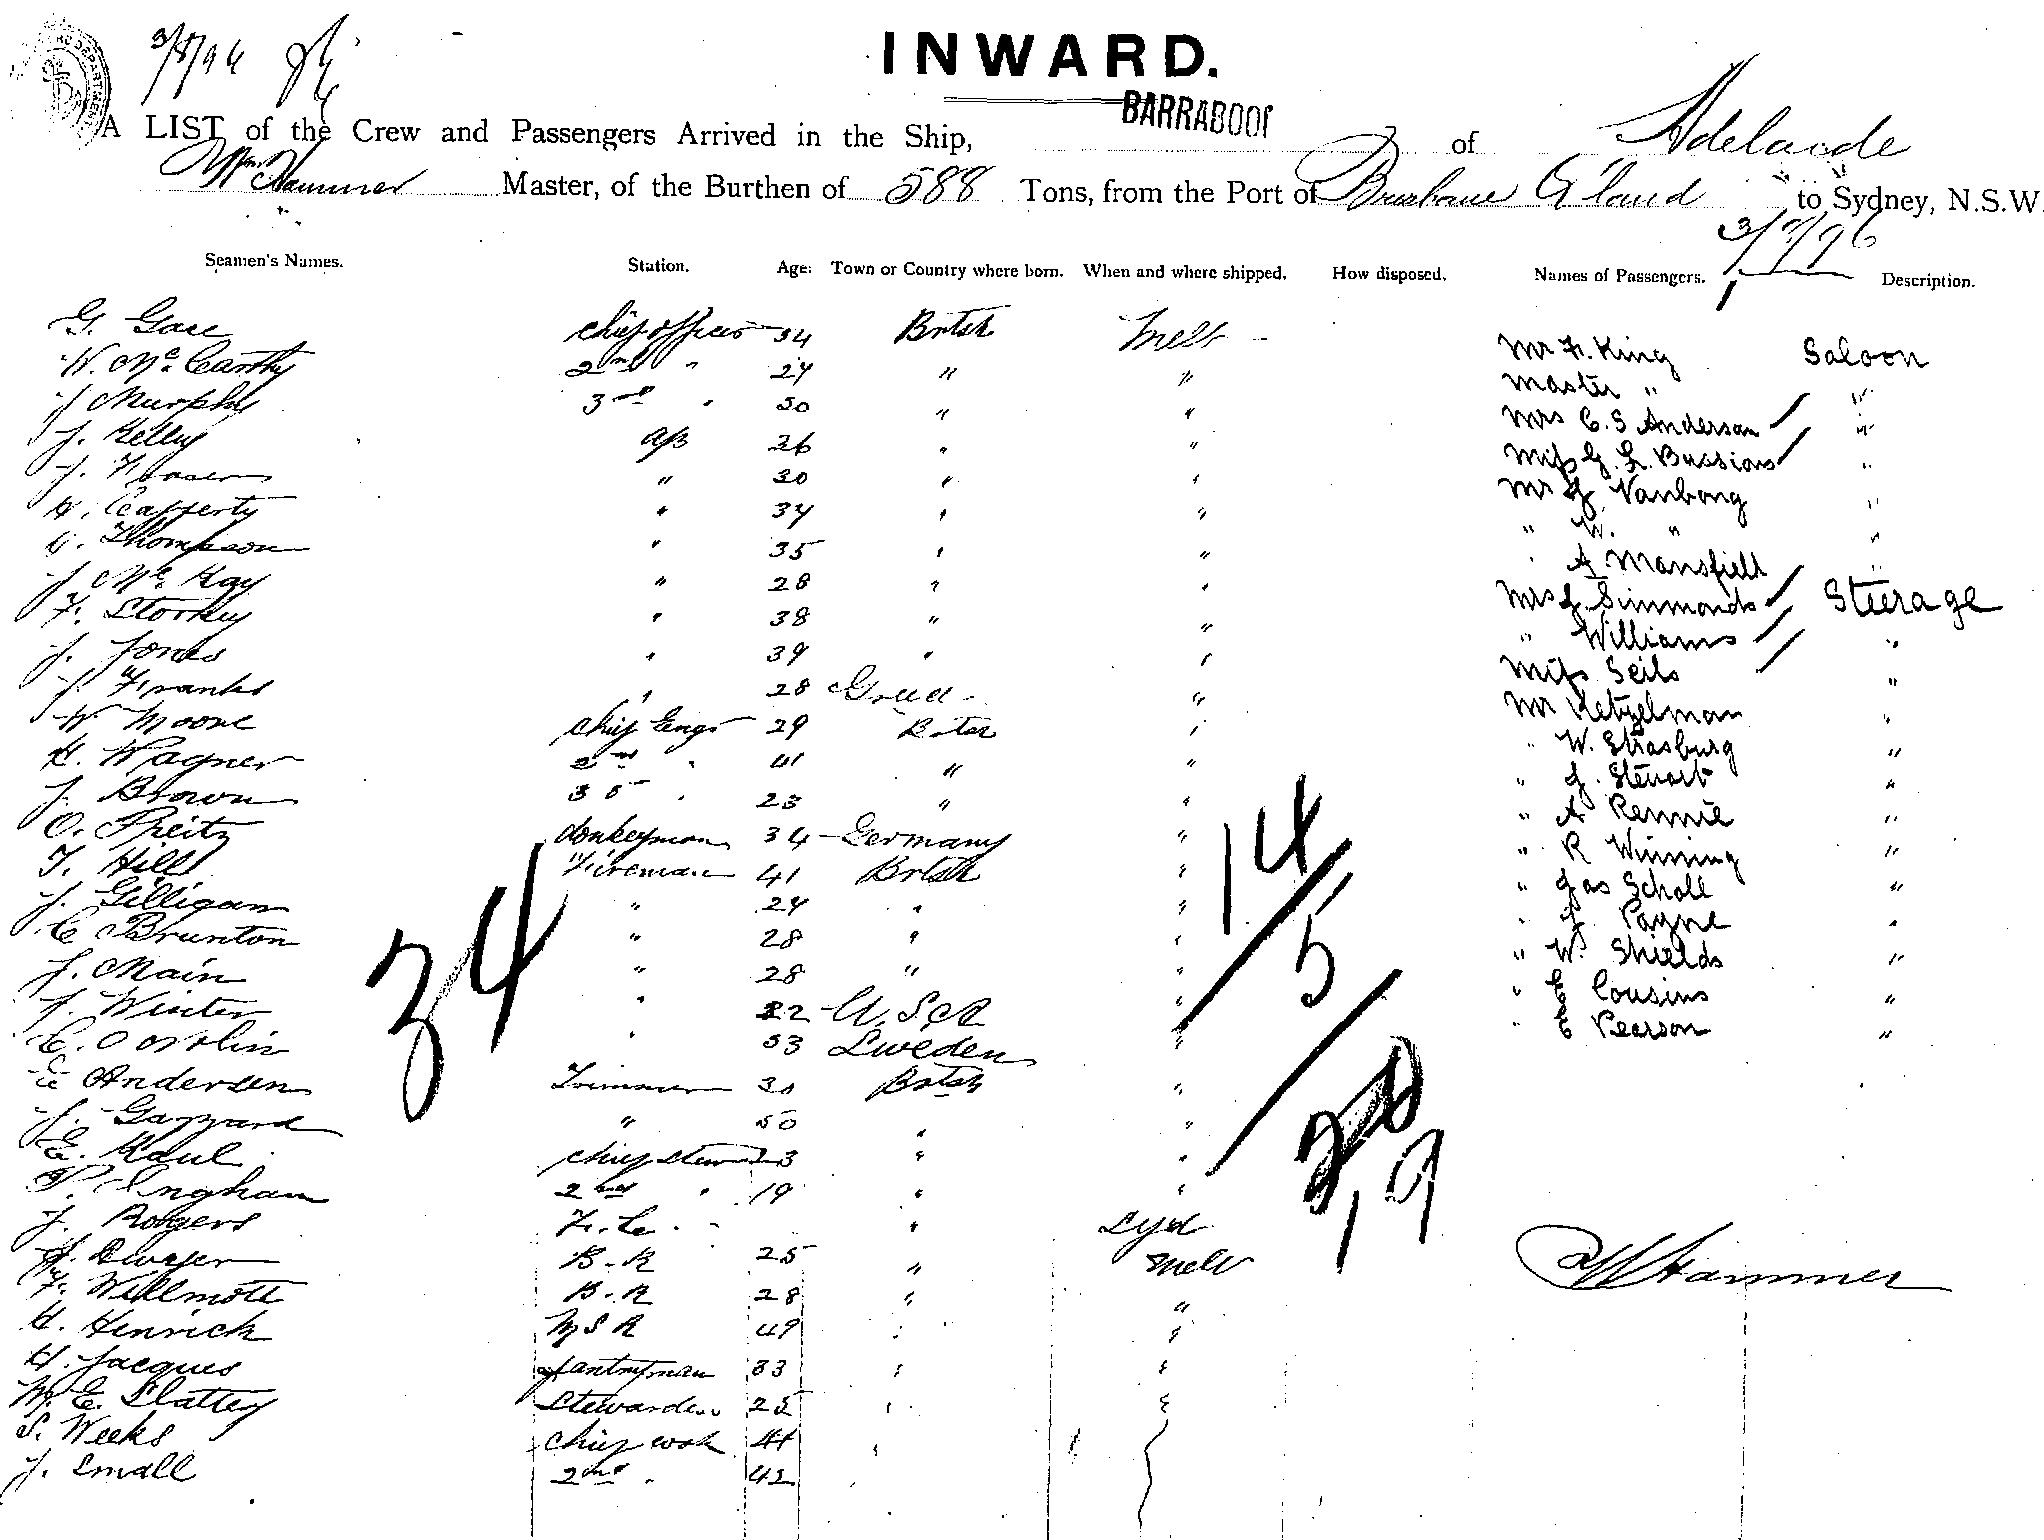 3/8/96
INWARD.
BARRABOOL
A LIST of the Crew and Passengers Arrived in the Ship, of Adelaide
Wm Hammer Master, of the Burthen of 588 Tons, from the Port of Brisbane Q'land to Sydney, N.S.W.
Seamen's Names. Station. Age: Town or Country where born. When and where shipped. How disposed. Names of Passengers. Description.
W. McCarthy 2nd " 27 " " Mr F. King Saloon
J Murphy 3rd " 30 " " Master " "
J. Kelly AB 26 " " Mrs C. S Anderson "
J. Fraser " 30 " " Miss G. L.
H. Cafferty " 37 " " Mr J. "
G. Thompson " 35 " " " W. " "
J. McKay " 28 " " " A Mansfield "
F. Storkey " 38 " " Mrs J. Simmonds Steerage
J. Jones " 39 " " " Williams "
J. Franks " 28 " Miss Seils "
W Moore Chief Engr 29 " Mr Ketzelman "
H. Wagner 2nd " 41 " " " W. Strasburg "
J. Brown 3rd " 23 " " " J. Stewart "
O. donkeyman 34 Germany " " A Rennie "
T. Hill Fireman 41 British " " R Winning "
J. Gilligan " 27 " " " Jas Scholl "
C Brunton " 28 " " " J. Payne "
J. Main " 28 " " " W. Shields "
J. Winter " 22 U.S.A " " E Cousins "
" 33 Sweden " " E Pearson "
E Andersen Trimmer 30 British "
J. Gazzard " 50 " "
E. Kaul Chief Steward 23 " "
P. Ingham 2nd " 19 " "
J. Rogers F. C. " Syd
H. Dwyer B.R 25 " Melb
F. Willmott B.R 28 " "
H. Henrick M S R 49 " "
H. Jacques Pantryman 33 " "
M. E. Slattery Stewardess 25 " "
S. Weeks Chief Cook 44 "
J. Small 2nd " 42
34
14
5
19
WHammer